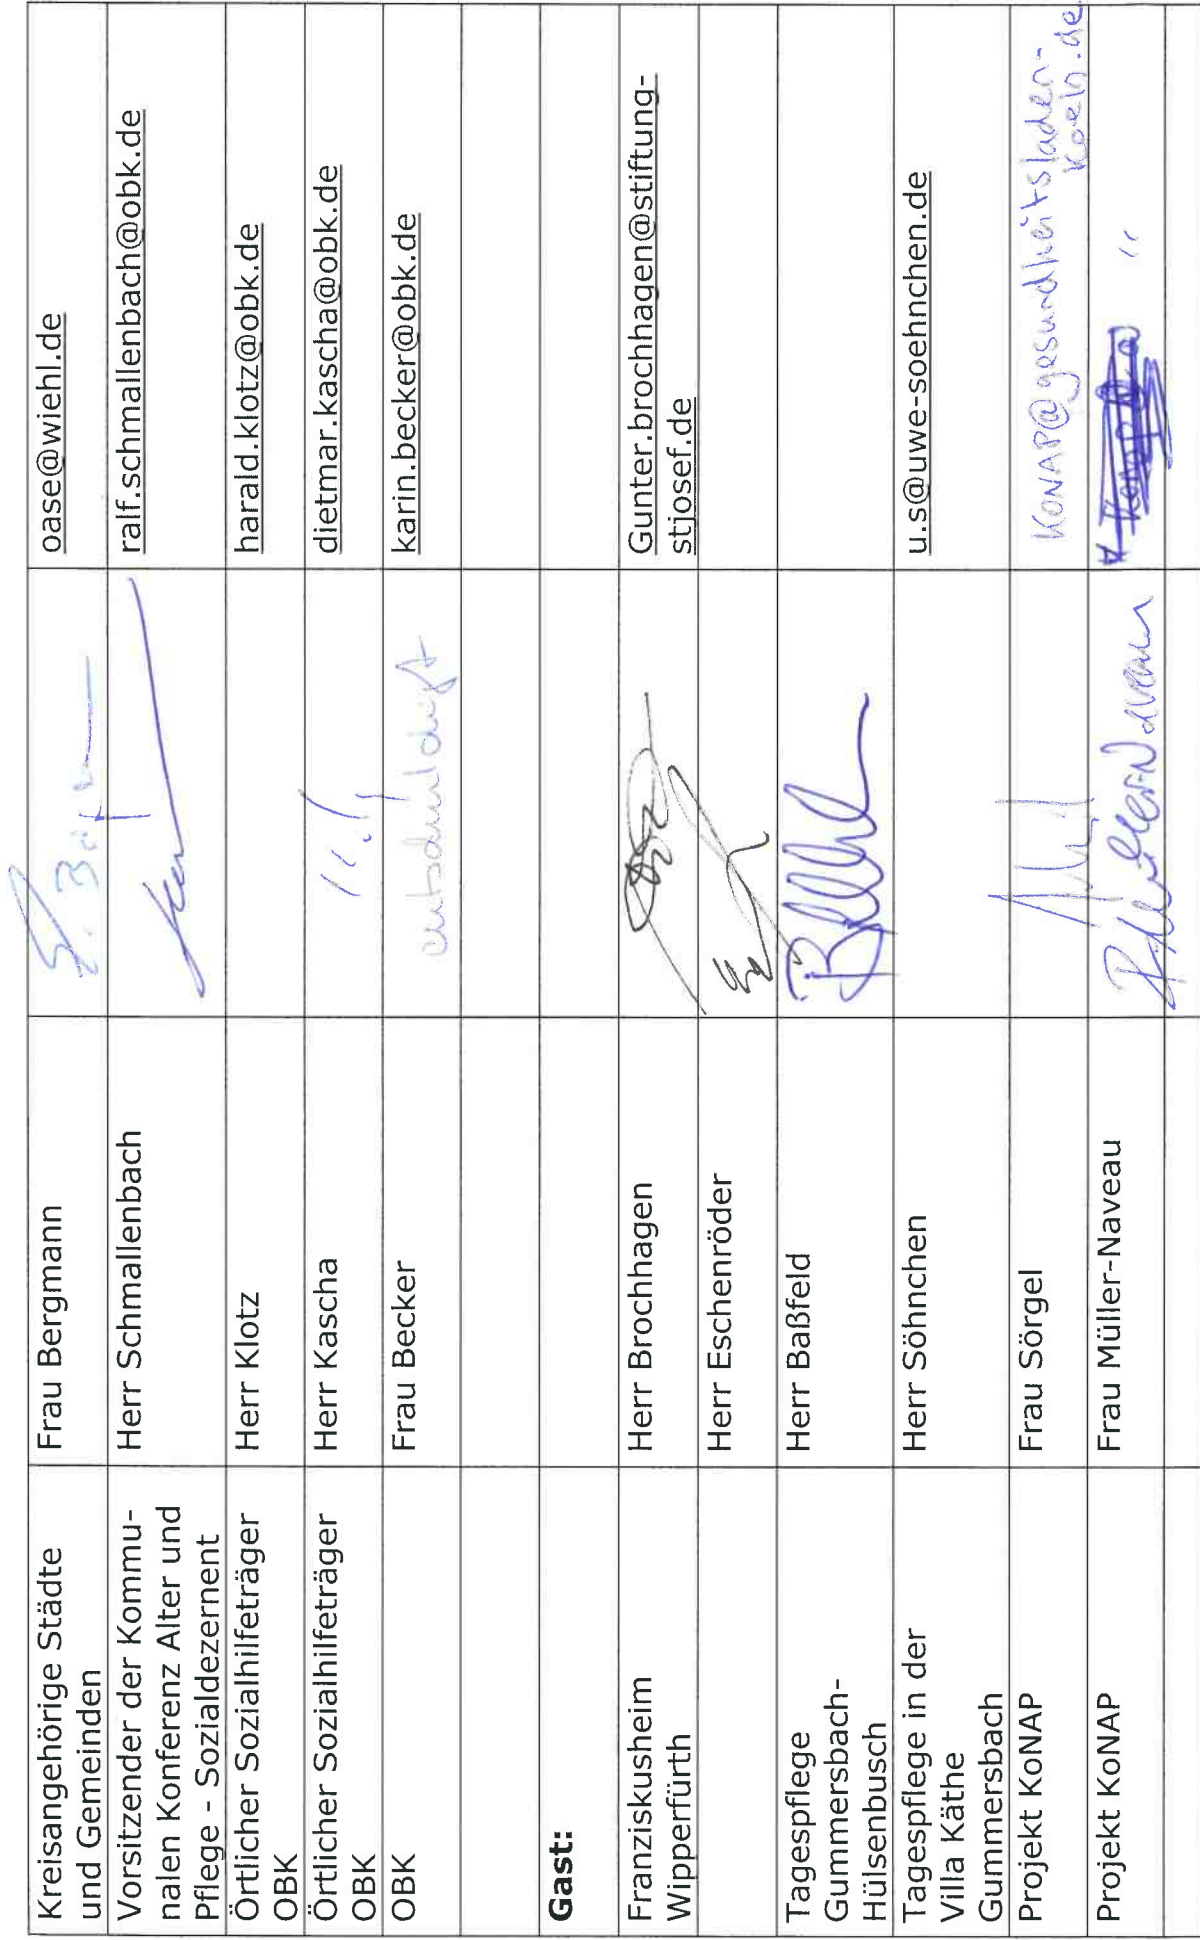 Kreisangehörige Städte
und Gemeinden
Frau Bergmann
oase@wiehl.de
Vorsitzender der Kommu-
nalen Konferenz Alter und
Pflege - Sozialdezernent
Herr Schmallenbach
ralf.schmallenbach@obk.de
Örtlicher Sozialhilfeträger
OBK
Herr Klotz
harald.klotz@obk.de
Örtlicher Sozialhilfeträger
OBK
Herr Kascha
dietmar.kascha@obk.de
OBK
Frau Becker
entschuldigt
karin.becker@obk.de
Gast:
Franziskusheim
Wipperfürth
Herr Brochhagen
Gunter.brochhagen@stiftung-
stjosef.de
Herr Eschenröder
Tagespflege
Gummersbach-
Hülsenbusch
Herr Baßfeld
Tagespflege in der
Villa Käthe
Gummersbach
Herr Söhnchen
u.s@uwe-soehnchen.de
Projekt KoNAP
Frau Sörgel
KONAP@gesundheitsladen-
koeln.de
Projekt KoNAP
Frau Müller-Naveau
"